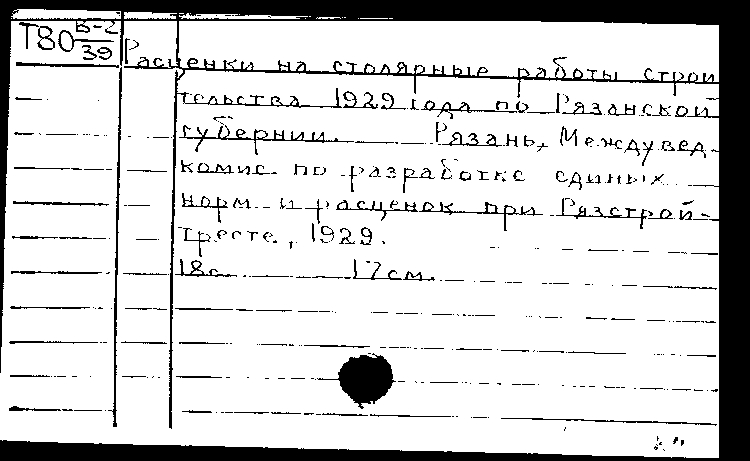 Т80 В-2/39
Расценки на столярные работы строи
тельства 1929 года по Рязанской
губернии. Рязань, Междувед-
комис. по разработке единых
норм и расценок при Рязстрой-
тресте, 1929.
18с. 17см.